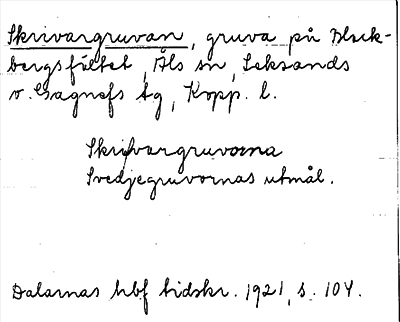 Skrivargruvan, gruva på Bleck-
bergsfältet, Åls sn, Leksands
o. Gagnefs tg, Kopp. l.
Skrifvargruvorna
Svedjegruvornas utmål.
Dalarnas hbf tidskr. 1921, s. 104.